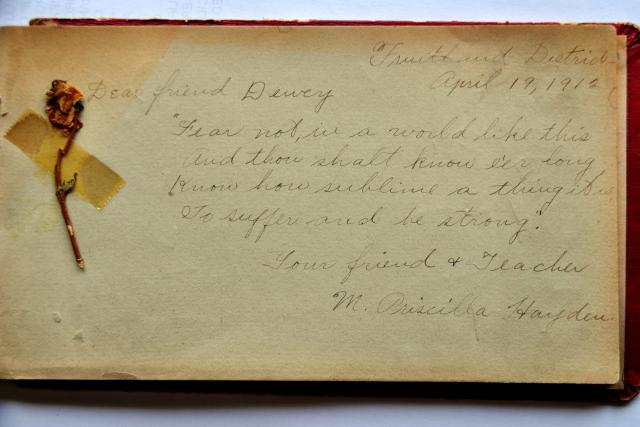 District
April 19, 1912
Dear friend Dewey
"Fear not, in a world like this
And thou shalt know e'er long
Know how sublime a thing it is
To suffer and be strong."
Your friend & Teacher
M. Priscilla Hayden.